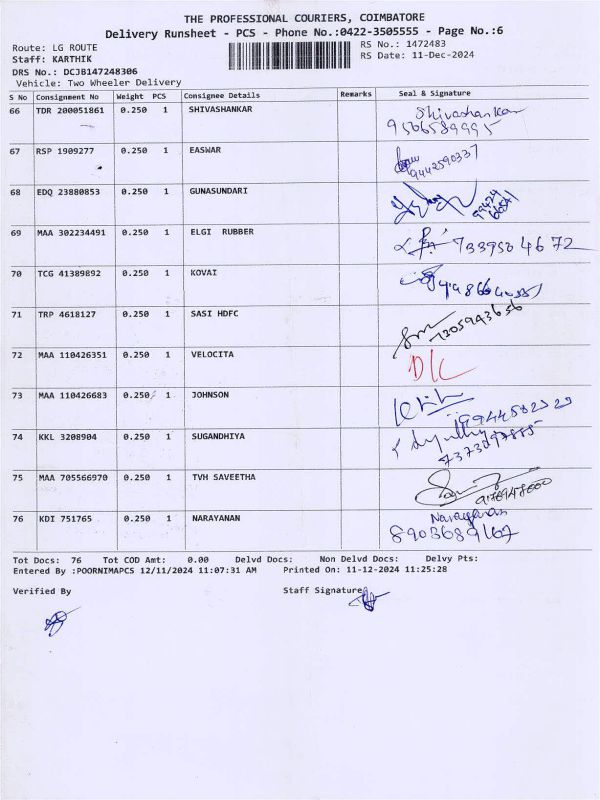 THE PROFESSIONAL COURIERS, COIMBATORE
Delivery Runsheet - PCS - Phone No.:0422-3505555 - Page No.:6
Route: LG ROUTE
RS No.: 1472483
Staff: KARTHIK
RS Date: 11-Dec-2024
DRS No.: DCJB147248306
Vehicle: Two Wheeler Delivery
S No Consignment No Weight PCS Consignee Details Remarks Seal & Signature
66 TDR 200051861 0.250 1 SHIVASHANKAR Shivashankar
9566589995
67 RSP 1909277 0.250 1 EASWAR 9442590337
68 EDQ 23880853 0.250 1 GUNASUNDARI
69 MAA 302234491 0.250 1 ELGI RUBBER 7339504672
70 TCG 41389892 0.250 1 KOVAI
71 TRP 4618127 0.250 1 SASI HDFC
72 MAA 110426351 0.250 1 VELOCITA D/C
73 MAA 110426683 0.250 1 JOHNSON
74 KKL 3208904 0.250 1 SUGANDHIYA
75 MAA 705566970 0.250 1 TVH SAVEETHA
76 KDI 751765 0.250 1 NARAYANAN Narayanan
8903689167
Tot Docs: 76 Tot COD Amt: 0.00 Delvd Docs: Non Delvd Docs: Delvy Pts:
Entered By :POORNIMAPCS 12/11/2024 11:07:31 AM Printed On: 11-12-2024 11:25:28
Verified By Staff Signature